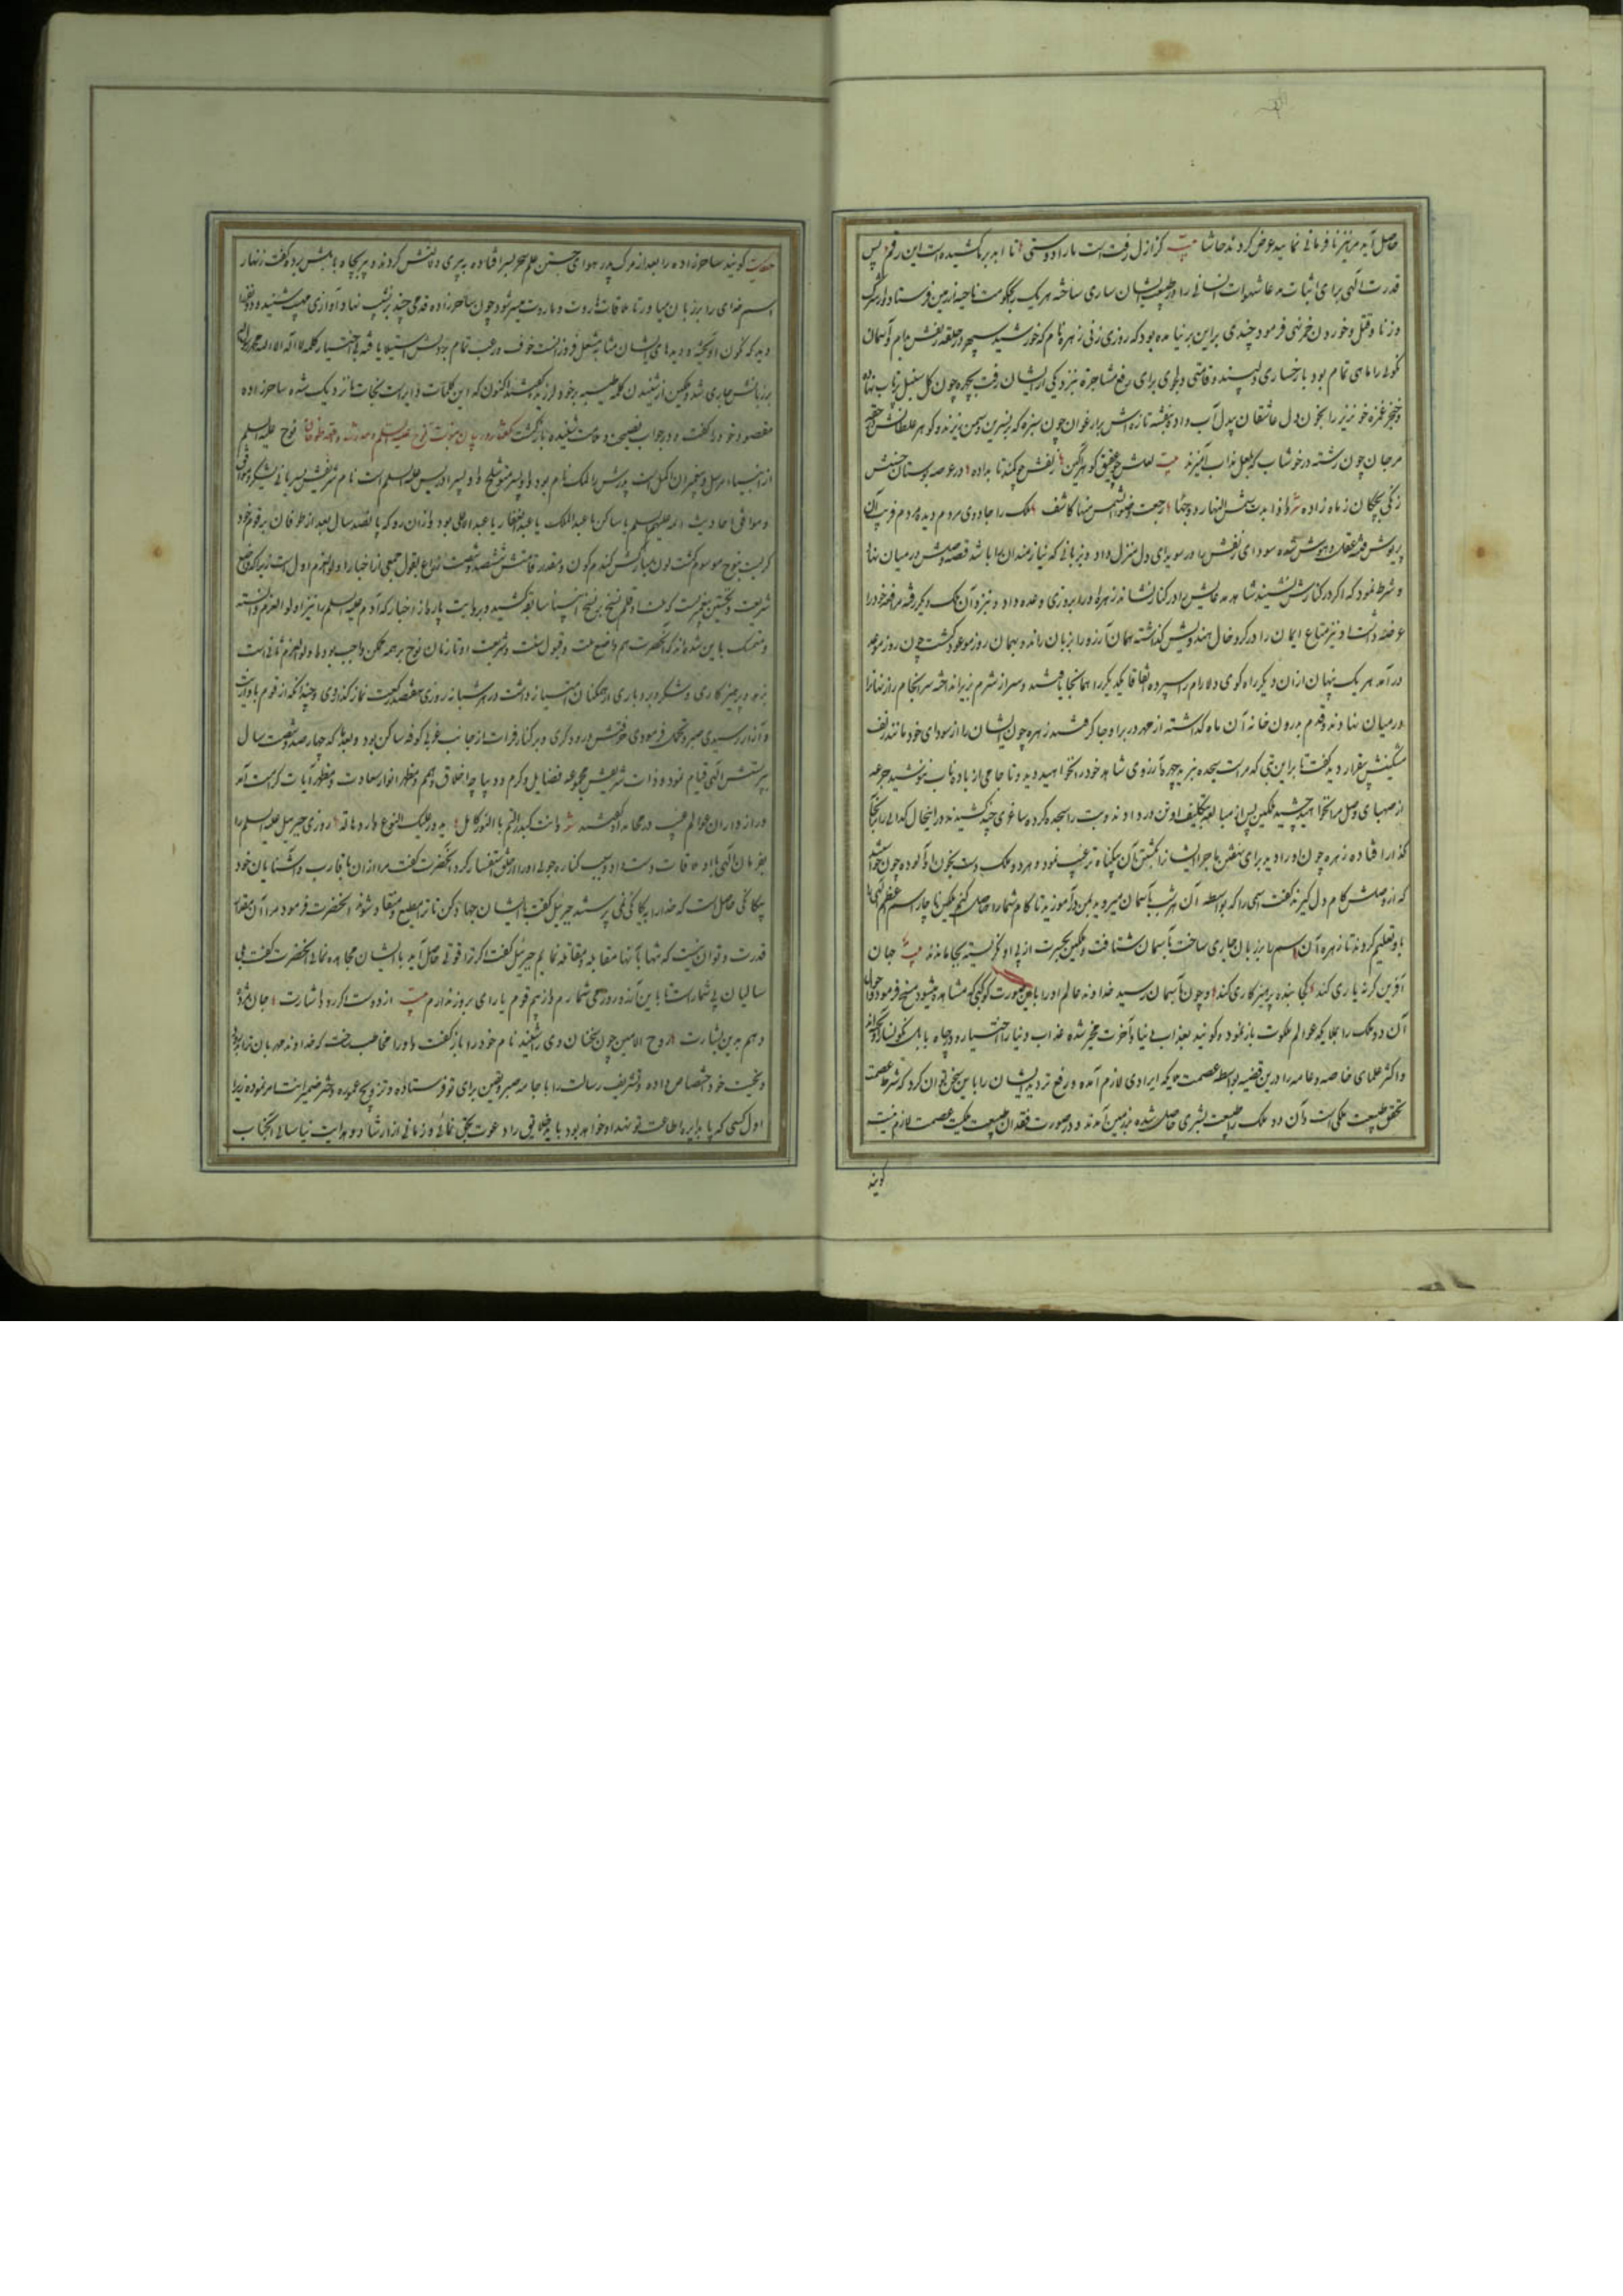 حاصل آید مر نیز نافرمانی نمایید عرض کردند حاشا بیت کز ازل رفت است ما را دوستی تا ابد بر ما کشیده است این رقم پس
قدرت الهی برای اثبات مدعا شهوات انسانی را در طبیعت ایشان ساری ساخته هر یک بحکومت ناحیه از زمین فرستاد و از شرک
و زنا و قتل و خوردن خمر نهی فرمود چندی براین بر نیامده بود که روزی زنی زهره نام که خورشید سپهر در حلقه زلفش بدام و آسمان
نکوئی را ماهی تمام بود با رخساری دلپسند و قامتی دلجوی برای رفع مشاجره نزد یکی از ایشان رفت چهره چون گل سنبل پرتاب نهاده
و خنجر غمزه خونریز را بخون دل عاشقان بیدل آب داده بنفشه تازه اش بر ارغوان چون سبزه که بر نسرین و سمن ریزند و گوهر
مرجان چون رشته در خوشاب که بلعل مذاب آمیزند بیت لعلش چو عقیق گوهرآگین زلفش چو کمند تاب داده در عرصه بوستان حسنش
زنگی بچگان ز ماه زاده شعر اذا بدت شمس النهار وجهها رجعت وضوء الشمس منها کاشف ملک را جادوی مردم دیده مردم فریب آن
پریوش عقل و هوش شده سودای زلفش را در سویدای دل منزل داد و بزبانی که نیازمندان را باشد قصه وصلش در میان نهاد
و شرط نمود که اگر در کنارش نشیند شاهد مدعایش را در کنار نشاند زهره او را بروزی وعده داد و نزد آن ملک دیگر رفته مرافعه خود را
عرضه داشت او نیز متاع ایمان را در گرو خال هندویش گذاشته همان آرزو را بزبان راند و بهمان روز موعود گشت چون روز موعد
در آمد هر یک پنهان از آن دیگر راه کوی دلارام را سپرده اتفاقا یکدیگر را همانجا یافتند و سر از شرم بزیر انداخته سرانجام راز نهان را
در میان نهادند و قدم بدرون خانه آن ماه گذاشته از مهر در بر او جا گرفتند زهره چون ایشان را از سودای خود مانند زلف
مشکینش بیقرار دید گفت تا براین بتی که مر است سجده نبرید چهره آرزوی شاهد خود را نخواهید دید و تا جامی از باده ناب ننوشید جرعه
از صهبای وصل مرا نخواهید چشید ملکین پس از مبالغه بتکلیف او تن در دادند و بت را سجده کرده ساغری چند کشیدند در این حال گدائی را بر آنجا
گذار افتاده زهره چون او را دید برای نهفتن ماجرا ایشان را بکشتن آن بیگناه ترغیب نمود و هر دو ملک دست بخون او آلوده چون خواستند
که از وصلش کام دل گیرند گفت اسمی را که بواسطه آن هر شب بآسمان میروید بمن در آموزید تا کام شما را حاصل کنم ملکین ناچار اسم اعظم الهی را
باو تعلیم کردند تا زهره آن اسم را بر زبان جاری ساخت بآسمان شتافت و ملکین بحسرت از پی او نگریسته بجا ماندند بیت جان
آفرین گر نه یاری کند کجا بنده پرهیزکاری کند و چون بآسمان رسید خداوند عالم او را باین صورت کوکبی که مشاهد میشود مسخ فرمود
آن دو ملک را بعوالم ملکوت باز نمود و گویند بعذاب دنیا و آخرت مخیر شده عذاب دنیا را اختیار و در چاه بابل نگونسار آویخته اند
و اکثر علمای خاصه و عامه را درین قضیه بواسطه عصمت ملایکه ایرادی لازم آمده و رفع تردید ایشان را باین سخن توان کرد که شرط عصمت
تحقق طبیعت ملکی است و آن دو ملک را طبیعت بشری حاصل شده بزمین آمدند و در صورت فقدان طبیعت ملکیت عصمت لازم نیست
گویند
حکایت گویند ساحرزاده را بعد از مرگ پدر هوای جستن علم سحر بسر افتاده به پیری دلالتش کردند و پیر بچاه بابلش برد و گفت زنهار
اسم خدای را بر زبان میاور تا ملاقات هاروت و ماروت میسر شود چون ساحرزاده قدمی چند بنشیب نهاد آوازی مهیب شنید و دو شخص را
دید که نگون آویخته و دیدهای ایشان مشابه مشعل فروزانست خوف و رعب تمام بر دلش استیلا یافته بی اختیار کلمه لا اله الا الله
بر زبانش جاری شد ملکین از شنیدن کلمه طیبه بر خود لرزیده گفتند اکنون که این کلمات در میان است نجات ما نزدیک شده ساحرزاده
مقصود خود را گفت و در جواب نصیحت و ملامت شنیده بازگشت گفتار در بیان بعثت نوح علیه السلم و قصه طوفان نوح علیه السلم
از انبیاء مرسل و پیغمبران مکمل است پدرش را لمک نام بود و او پسر متوشلخ و او پسر ادریس علیه السلم است نام شریفش بسریانی یشکر
و موافق احادیث ائمه علیهم السلم یا ساکن یا عبدالملک یا عبدالغفار یا عبدالاعلی بود و از آن رو که پانصد سال بعد از طوفان بر قوم خود
گریست بنوح موسوم گشت لون مبارکش گندم گون و بقدر قامتش سیصد و شصت ذراع بقول جمعی از اخبار او اولوالعزم اول است زیرا که واضع
شریعت و نخستین پیغمبریست که قلم نسخ بر نسخ انبیا سابقه کشید و بروایت پاره از اخبار که آدم علیه السلم را نیز اولوالعزم دانسته
و متمسک باین شده اند که آنحضرت هم واضع ملت و قبول ملت و شریعت او تا زمان نوح بر همه ممکن واجب بود او اولوالعزم ثانی است
بزهد و پرهیزکاری و شکر و بردباری از همگنان امتیاز داشت در هر شبانه روزی هفتصد رکعت نماز گذاردی و چندانکه از قوم باو اذیت
و آزار رسیدی صبر و تحمل فرمودی حرفتش درودگری و بر کنار فرات از جانب غربی کوفه ساکن بود و بعد از آنکه چهارصد و شصت سال
بپرستش الهی قیام نمود و ذات شریفش مجموعه فضایل و کرم و دیباچه اخلاق و همم و مظهر انوار سعادت و مظهر آیات کرامت آمد
و رازداران عوالم غیب در محامد او گفتند شعر و انت کبدر التم بالنور کامل به در فلک النوع دار و هاله روزی جبرئیل علیه السلم را
بفرمان الهی با او ملاقات دست داد و سبب کناره جوئی او را از خلق استفسار کرد آنحضرت گفت مرا از آن اقارب و آشنایان خود
بیگانگی حاصل است که خدا را بیگانگی نمی پرستند جبرئیل گفت با ایشان جهاد کن تا ترا مطیع و منقاد شوند آنحضرت فرمود مرا آن مقدار
قدرت و توان نیست که تنها با آنها مقابله و مقاتله نمایم جبرئیل گفت اگر ترا قوتی حاصل آید با ایشان مجاهده نمائی آنحضرت گفت بلی
سالیان بی شمار است تا باین آرزو روز می شمارم و از بیم قوم یارای بروز ندارم بیت از دوست اگر رسد اشارت جان مژده
دهم بدین بشارت روح الامین چون سخنان وی را شنید نام خود را باز گفت و او را مخاطب ساخت که خداوند مهربان ترا به نبوت
و نخست خود اختصاص داده و تشریف رسالت را با جامه صبر و یقین برای تو فرستاده و تزویج عموره دختر ضمیر انت امر نموده زیرا
اول کسی که پا بدایره اطاعت تو نهد او خواهد بود باید خلایق را دعوت بحق نمائی و زمانی از ارشاد و هدایت نیاسائی آنجناب